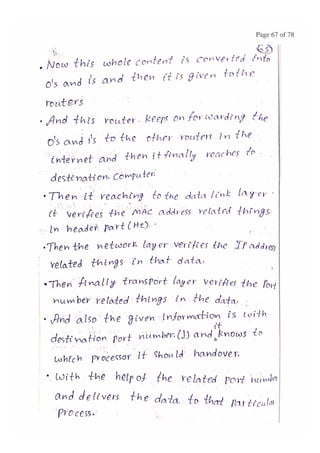 Page 67 of 78
63
• Now this whole content is converted into
0's and 1s and then it is given to the
routers
• And this router keeps on forwarding the
0's and 1's to the other routers in the
internet and then it finally reaches to
destination computer.
• Then it reaching to the data link layer
it verifies the MAC address related things
In header part (H2).
• Then the network layer verifies the IP address
related things in that data.
• Then finally transport layer verifies the Port
number related things in the data.
• And also the given information is with
destination port number (J) and it knows to
which processor it should handover.
• With the help of the related port number
and delivers the data to that particular
process.